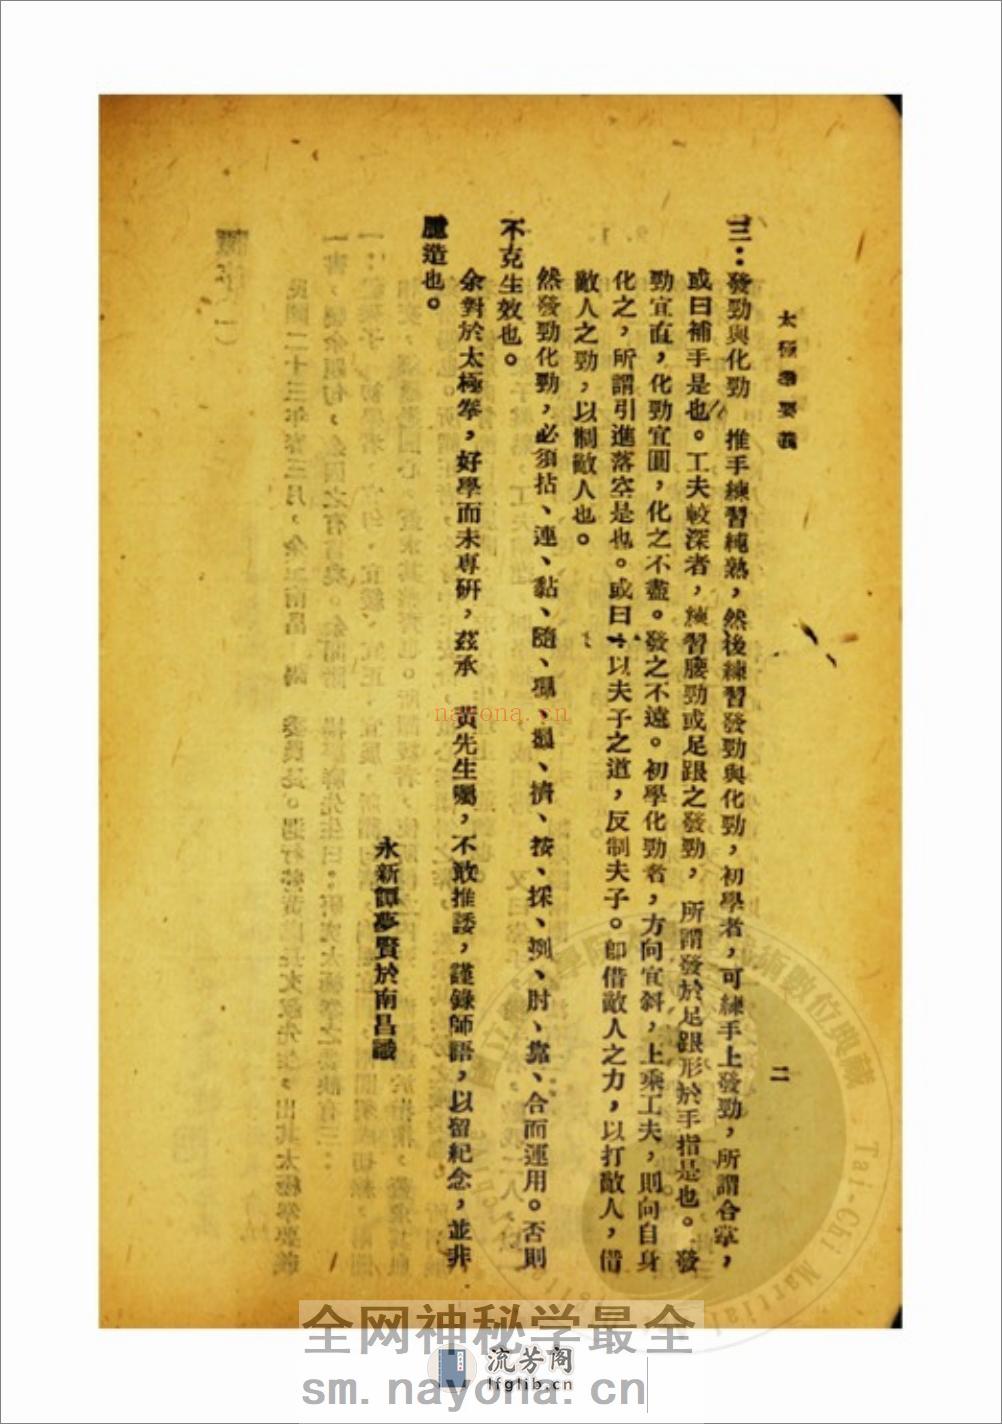 太極拳要義
二
三：發勁與化勁　推手練習純熟，然後練習發勁與化勁，初學者，可練手上發勁，所謂合掌，
或曰補手是也。工夫較深者，練習腰勁或足跟之發勁，所謂發於足跟形於手指是也。發
勁宜直，化勁宜圓，化之不盡。發之不遠。初學化勁者，方向宜斜，上乘工夫，則向自身
化之，所謂引進落空是也。或曰以夫子之道，反制夫子。卽借敵人之力，以打敵人，借
敵人之勁，以制敵人也。
然發勁化勁，必須拈、連、黏、隨、掤、攦、擠、按、採、挒、肘、靠、合而運用。否則
不克生效也。
余對於太極拳，好學而未專研，茲承　黃先生囑，不敢推諉，謹錄師語，以留紀念，並非
臆造也。
永新譚夢賢於南昌識
nayona.cn
Tai-Chi Martial
全网神秘学最全
流芳阁
lfglib.cn
sm.nayona.cn